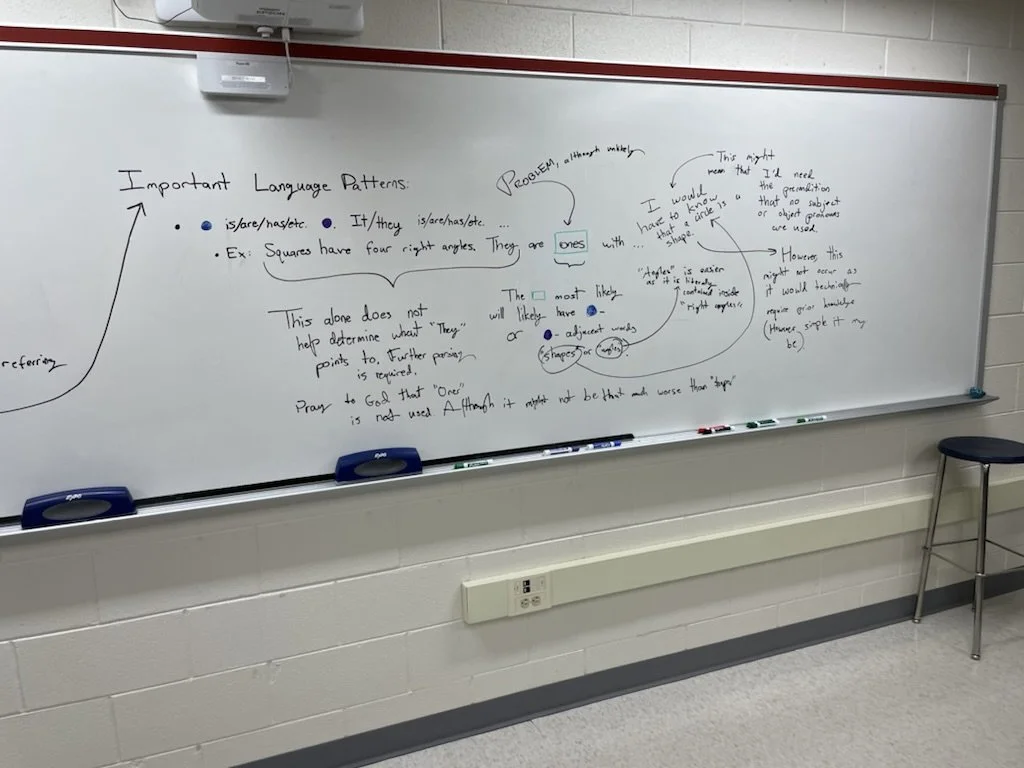 Important Language Patterns:
is/are/has/etc. It/they is/are/has/etc. ...
Ex: Squares have four right angles. They are ones with ...
PROBLEM, although unlikely
This alone does not
help determine what "They"
points to. Further parsing
is required.
Pray to God that "Ones"
is not used. Although it might not be that much worse than
The most likely
will likely have -
or - adjacent words
"shapes" or angles
"Angles" is easier
as it is literally
contained inside
"right angles".
I would
have to know
that a circle is a
shape.
This might
mean that I'd need
the precondition
that no subject
or object pronouns
are used.
However, this
might not occur as
it would technically
require prior knowledge
(However simple it may
be)
referring
EXPO
EXPO
EPSON